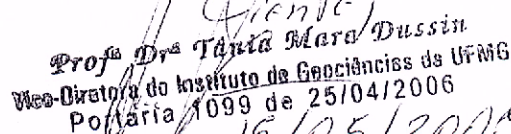 Ciente,
Profª Drª Tânia Mara Dussin
Vice-Diretora do Instituto de Geociências da UFMG
Portaria 1099 de 25/04/2006
15/05/2006